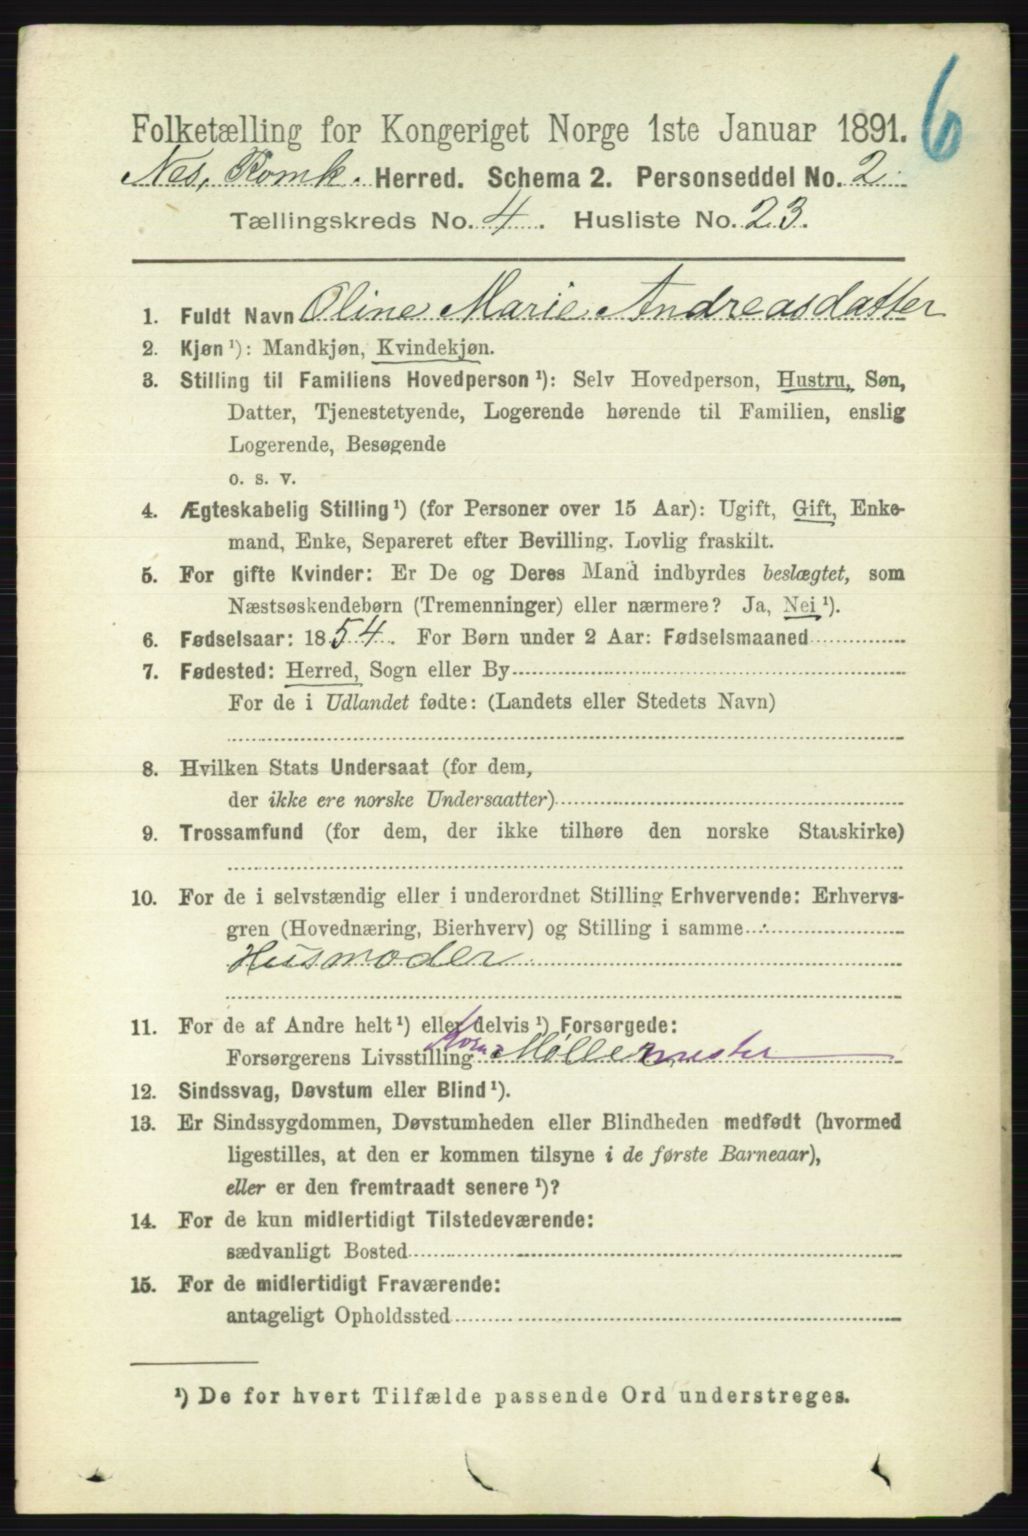 6
Folketælling for Kongeriget Norge 1ste Januar 1891.
Nes, Romk. Herred. Schema 2. Personseddel No. 2
Tællingskreds No. 4. Husliste No. 23.
1. Fuldt Navn Oline Marie Andreasdatter
2. Kjøn ¹): Mandkjøn, Kvindekjøn.
3. Stilling til Familiens Hovedperson ¹): Selv Hovedperson, Hustru, Søn,
Datter, Tjenestetyende, Logerende hørende til Familien, enslig
Logerende, Besøgende
o. s. v.
4. Ægteskabelig Stilling ¹) (for Personer over 15 Aar): Ugift, Gift, Enke-
mand, Enke, Separeret efter Bevilling. Lovlig fraskilt.
5. For gifte Kvinder: Er De og Deres Mand indbyrdes beslægtet, som
Næstsøskendebørn (Tremenninger) eller nærmere? Ja, Nei ¹).
6. Fødselsaar: 1854. For Børn under 2 Aar: Fødselsmaaned
7. Fødested: Herred, Sogn eller By
For de i Udlandet fødte: (Landets eller Stedets Navn)
8. Hvilken Stats Undersaat (for dem,
der ikke ere norske Undersaatter)
9. Trossamfund (for dem, der ikke tilhøre den norske Statskirke)
10. For de i selvstændig eller i underordnet Stilling Erhvervende: Erhvervs-
gren (Hovednæring, Bierhverv) og Stilling i samme
Husmoder
11. For de af Andre helt ¹) eller delvis ¹) Forsørgede:
Forsørgerens Livsstilling Korn Møllermester
12. Sindssvag, Døvstum eller Blind ¹).
13. Er Sindssygdommen, Døvstumheden eller Blindheden medfødt (hvormed
ligestilles, at den er kommen tilsyne i de første Barneaar),
eller er den fremtraadt senere ¹)?
14. For de kun midlertidigt Tilstedeværende:
sædvanligt Bosted
15. For de midlertidigt Fraværende:
antageligt Opholdssted
¹) De for hvert Tilfælde passende Ord understreges.